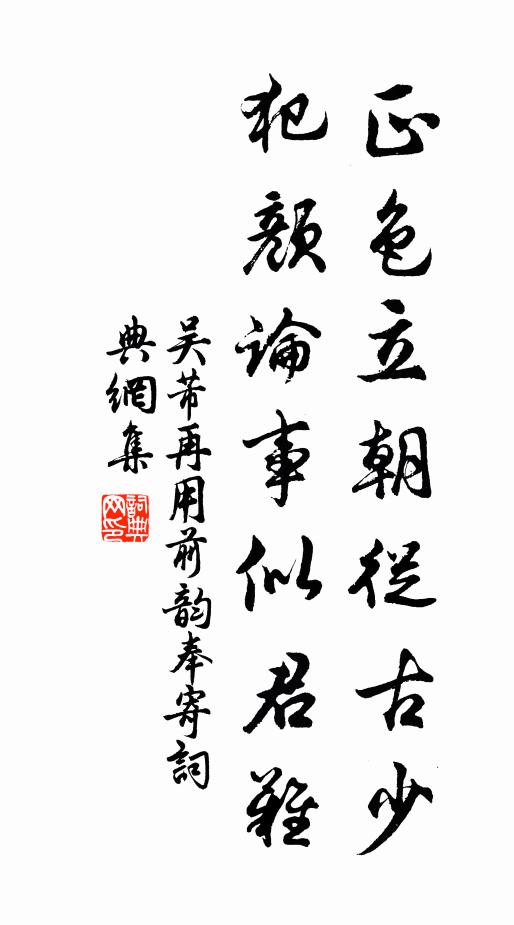 正色立朝從古少
犯顏論事似君難
吴芾再用前韵奉寄詞
典網集
詞典
网印